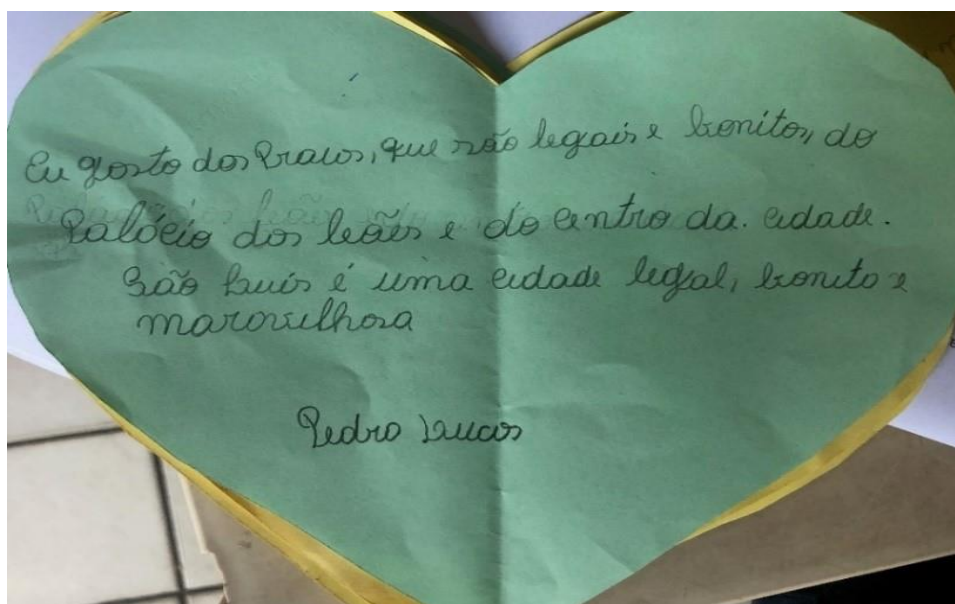 Eu gosto dos Praias, que são legais e bonitos, do
Palácio dos leões e do centro da. cidade.
São Luis é uma cidade legal, bonita e
maravilhosa
Pedro Lucas